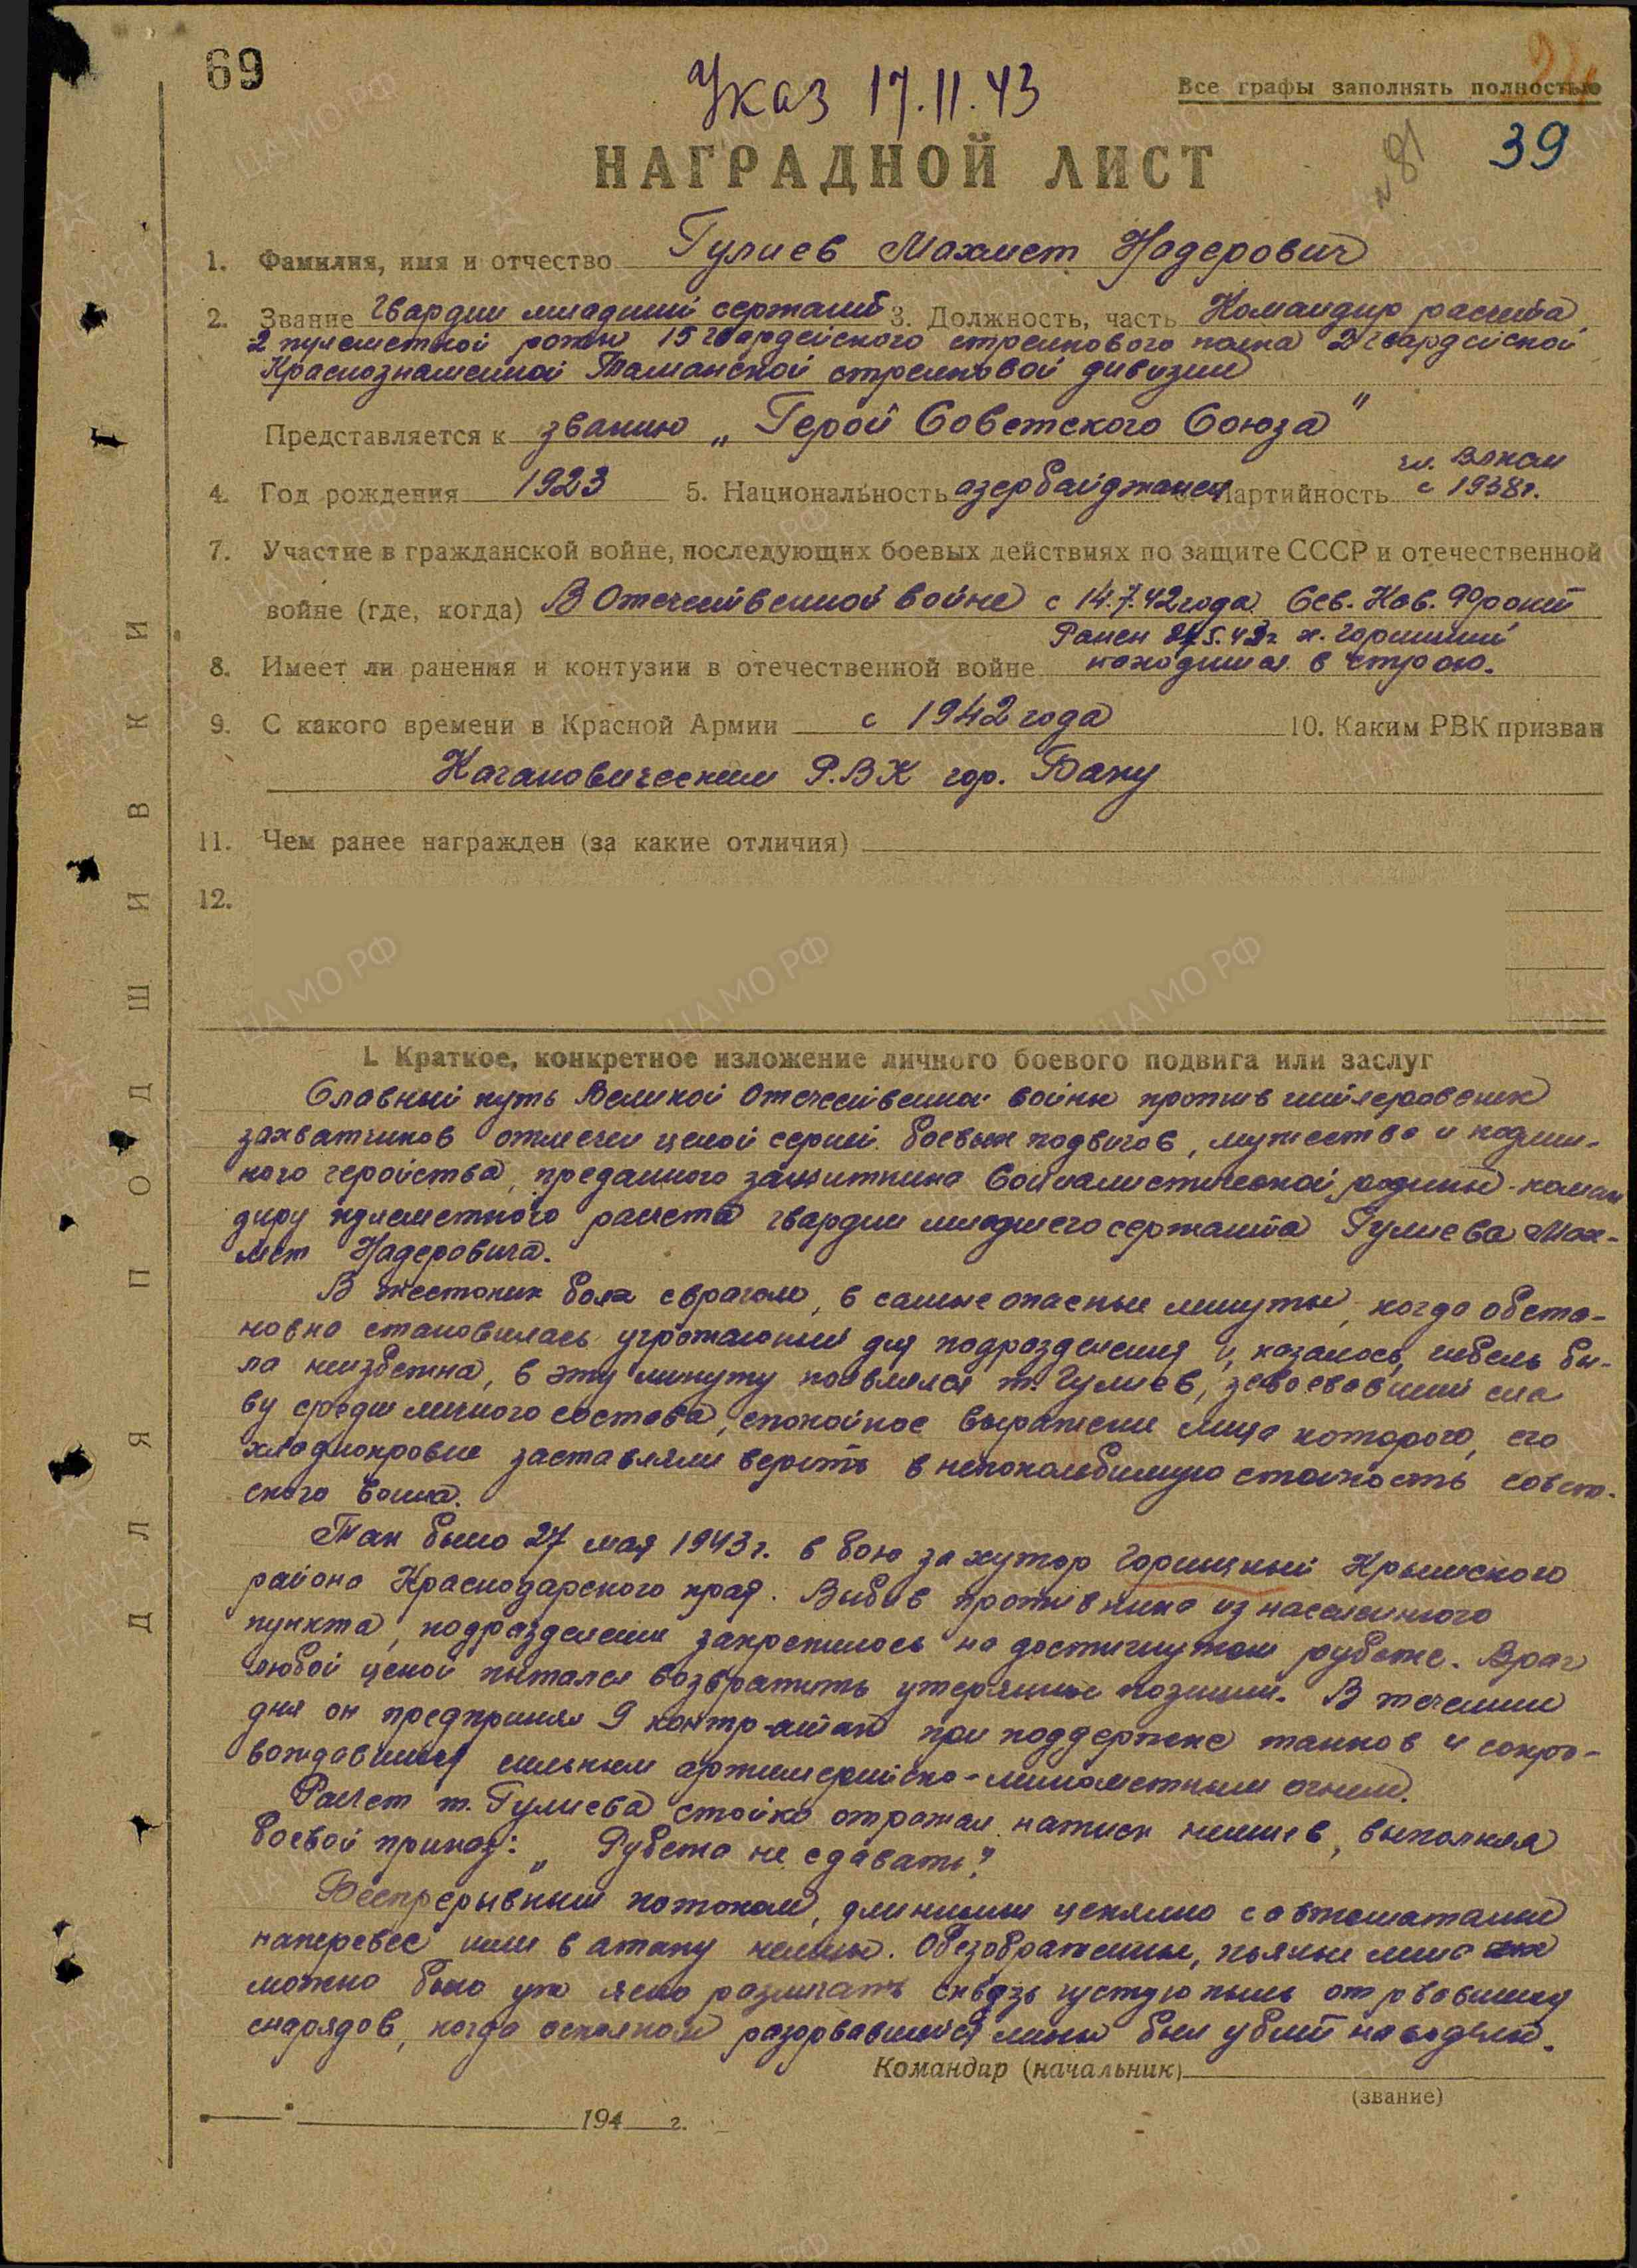 69
Указ 17.11.43
Все графы заполнять полностью
39
№ 81
НАГРАДНОЙ ЛИСТ
1. Фамилия, имя и отчество Гулиев Махмет Надерович
2. Звание Гвардии младший сержант 3. Должность, часть Командир расчета
2 пулеметной роты 15 гвардейского стрелкового полка 2 гвардейской
Краснознаменной Таманской стрелковой дивизии
Представляется к званию „Герой Советского Союза"
4. Год рождения 1923 5. Национальность азербайджанец Партийность чл. ВЛКСМ с 1938г.
7. Участие в гражданской войне, последующих боевых действиях по защите СССР и отечественной
войне (где, когда) В Отечественной войне с 14.7.42 года Сев. Кав. Фронт
Ранен 27.5.43г х. Горишный
8. Имеет ли ранения и контузии в отечественной войне находился в строю.
9. С какого времени в Красной Армии с 1942 года 10. Каким РВК призван
Кагановическим Р.В.К гор. Баку
11. Чем ранее награжден (за какие отличия)
12.
I. Краткое, конкретное изложение личного боевого подвига или заслуг
Славный путь Великой Отечественной войны против гитлеровских
захватчиков отмечен целой серией боевых подвигов, мужества и подлин-
ного геройства, преданного защитника Социалистической родины - коман
диру пулеметного расчета гвардии младшего сержанта Гулиева Мах-
мет Надеровича.
В жестоких боях с врагом, в самые опасные минуты, когда обста-
новка становилась угрожающий для подразделения и, казалось, гибель бы-
ла неизбежна, в эту минуту появлялся т. Гулиев, завоевавший сла
ву среди личного состава, спокойное выражение лица которого, его
хладнокровие заставляли верить в непоколебимую стойкость совет-
ского воина.
Так было 27 мая 1943г. в бою за хутор Горищный Крымского
района Краснодарского края. Выбив противника из населенного
пункта, подразделение закрепилось на достигнутом рубеже. Враг
любой ценой пытался возвратить утерянные позиции. В течении
дня он предпринял 9 контр-атак при поддержке танков и сопро-
вождавшихся сильным артиллерийско-минометным огнем.
Расчет т. Гулиева стойко отражал натиск немцев, выполняя
боевой приказ: „Рубежа не сдавать!"
Беспрерывным потоком, длинными цепями с автоматами
наперевес шли в атаку немцы. Обезображенные, пьяные лица их
можно было уже ясно различать сквозь густую пыль от рвавшихся
снарядов, когда осколком разорвавшейся мины был убит наводчик.
Командир (начальник)
(звание)
194 г.
ДЛЯ ПОДШИВКИ
ЦА МО РФ